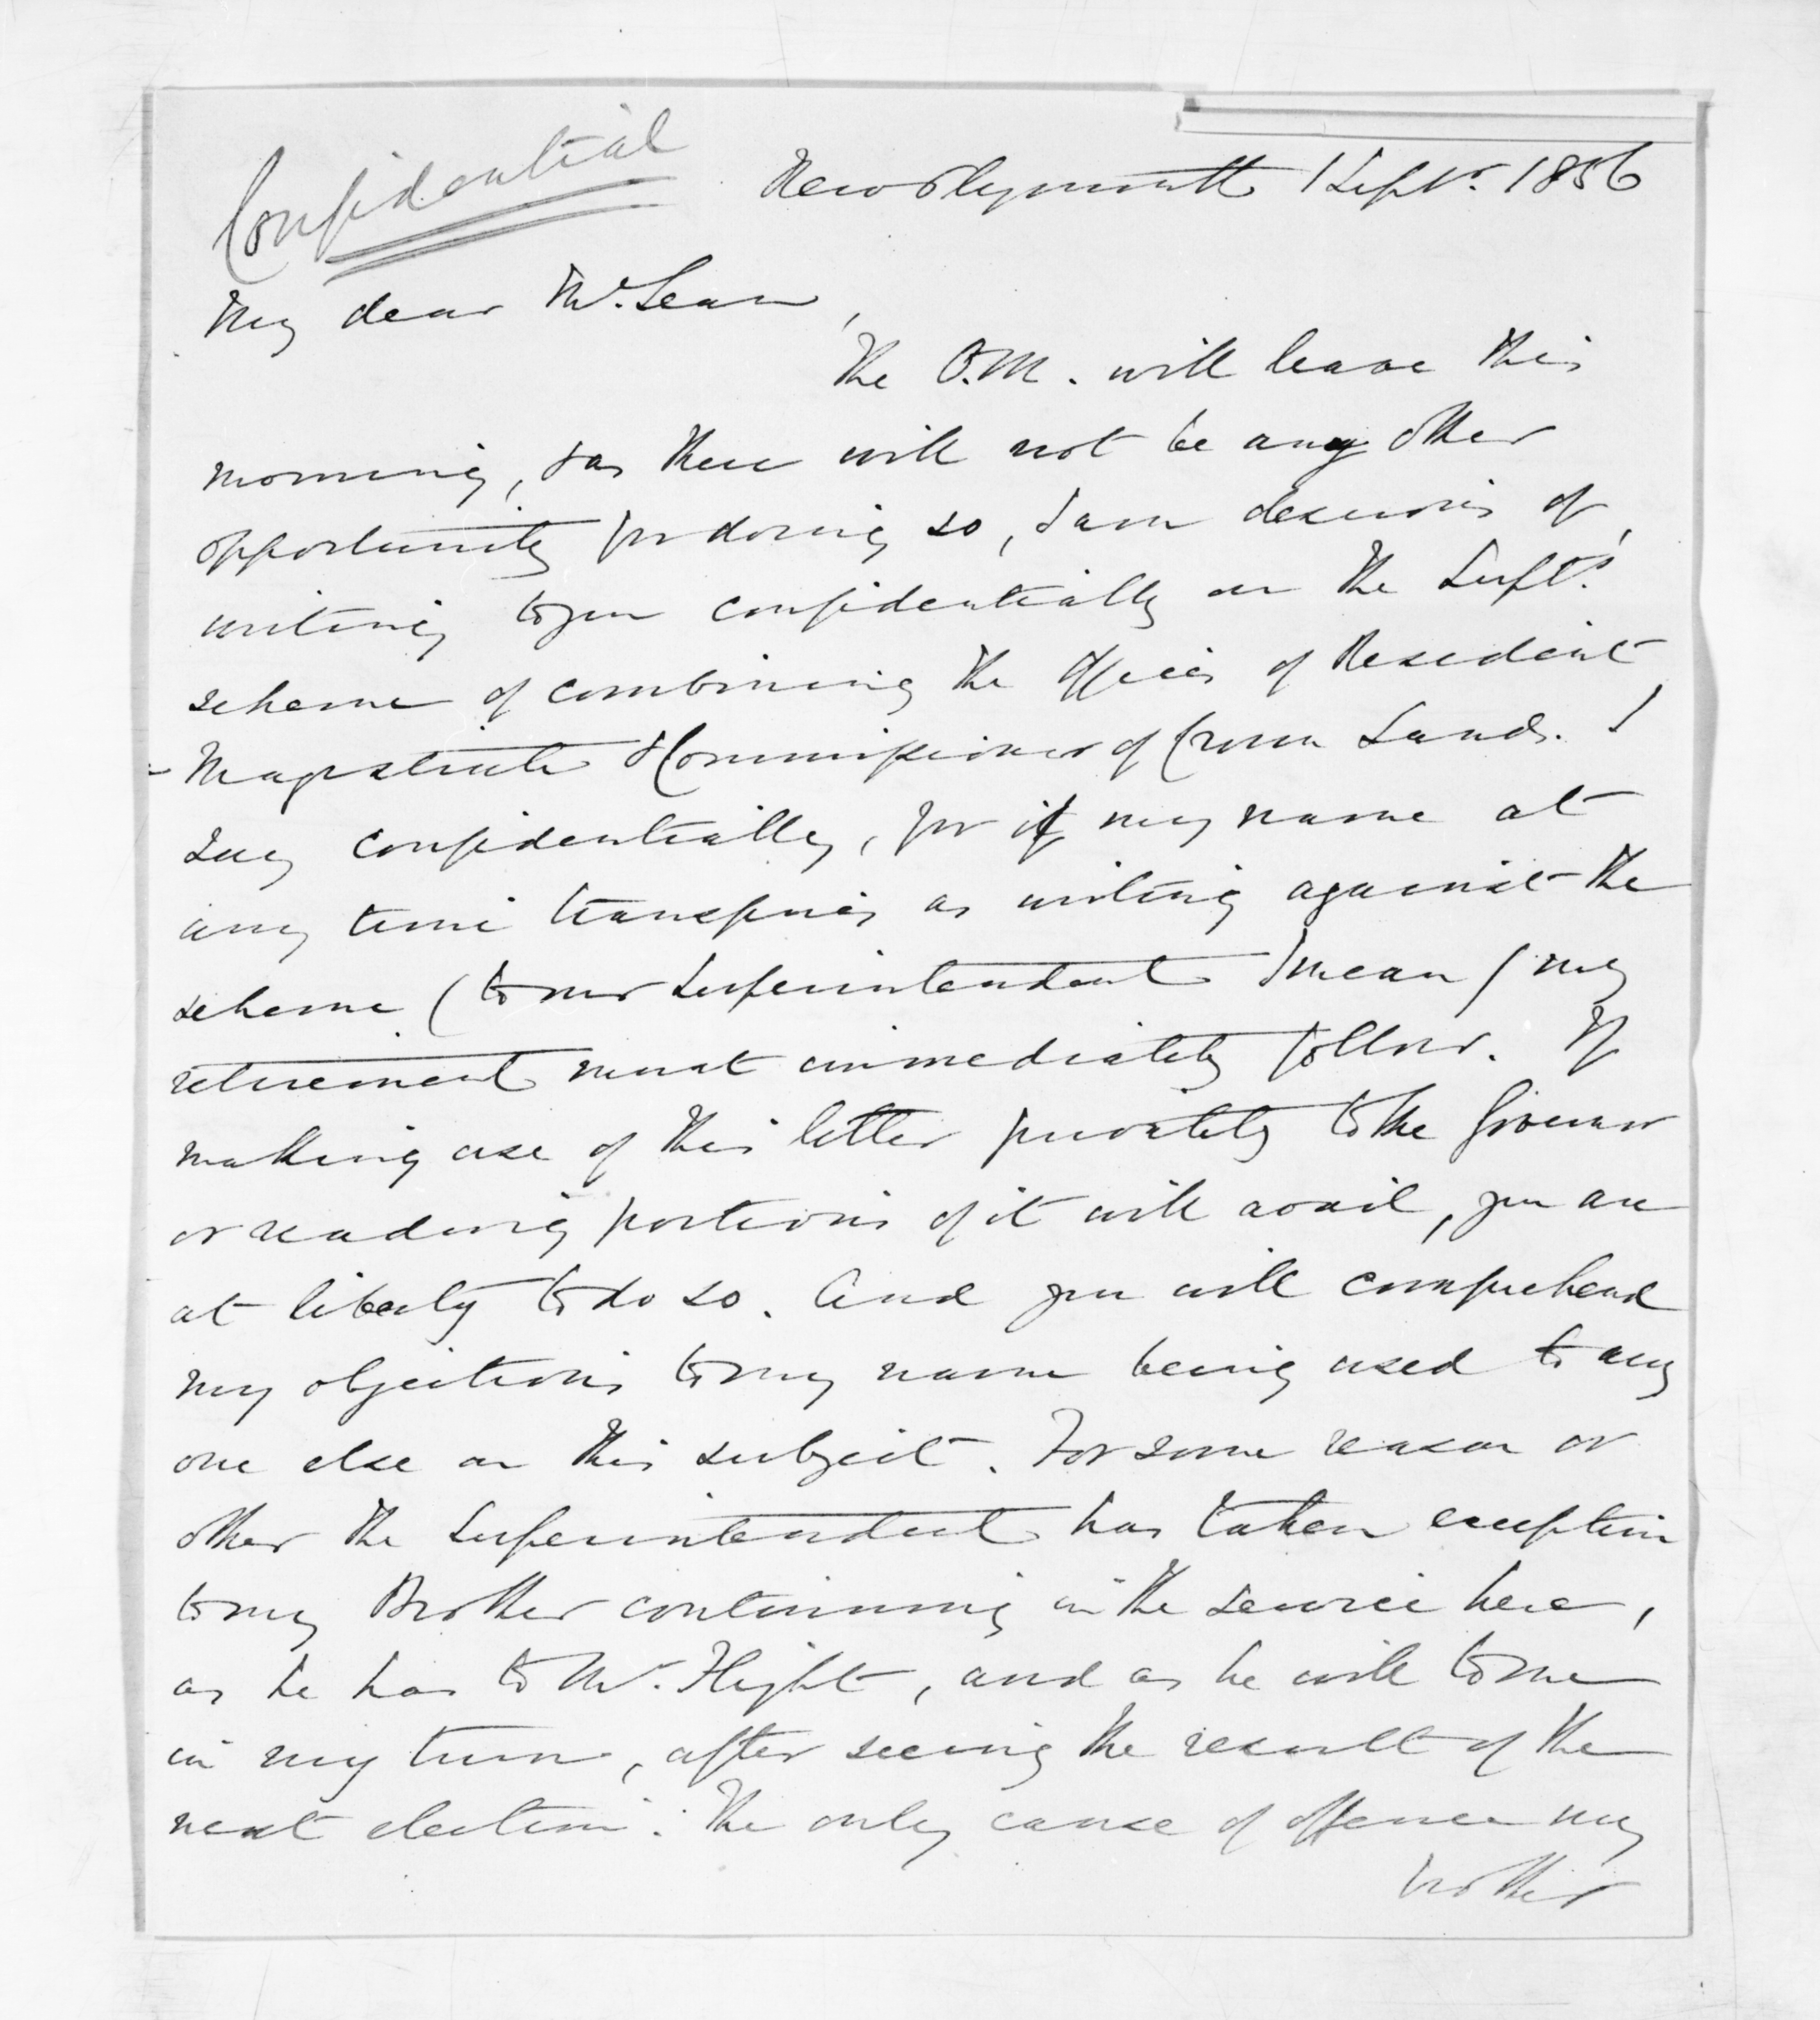 Confidential
New Plymouth 1 Septr. 1856
My dear McLean,
The O.M. will leave this
morning, & as there will not be any other
opportunity for doing so, I am desirous of,
writing to you confidentially on the Supt's
scheme of combining the offices of Resident
Magistrate & Commissioner of Crown Lands. I
say confidentially, for if my name at
any time transpires as writing against the
scheme (to our Superintendent I mean) my
retirement must immediately follow. If
making use of this letter privately to the Governor
or reading portions of it will avail, you are
at liberty to do so. And you will comprehend
my objections to my name being used to any
one else on this subject. For some reason or
other the Superintendent has taken exception
to my Brother continuing in the service here,
as he has to Mr. Flight, and as he will to me
in my turn, after seeing the result of the
next election. The only cause of offence my
brother